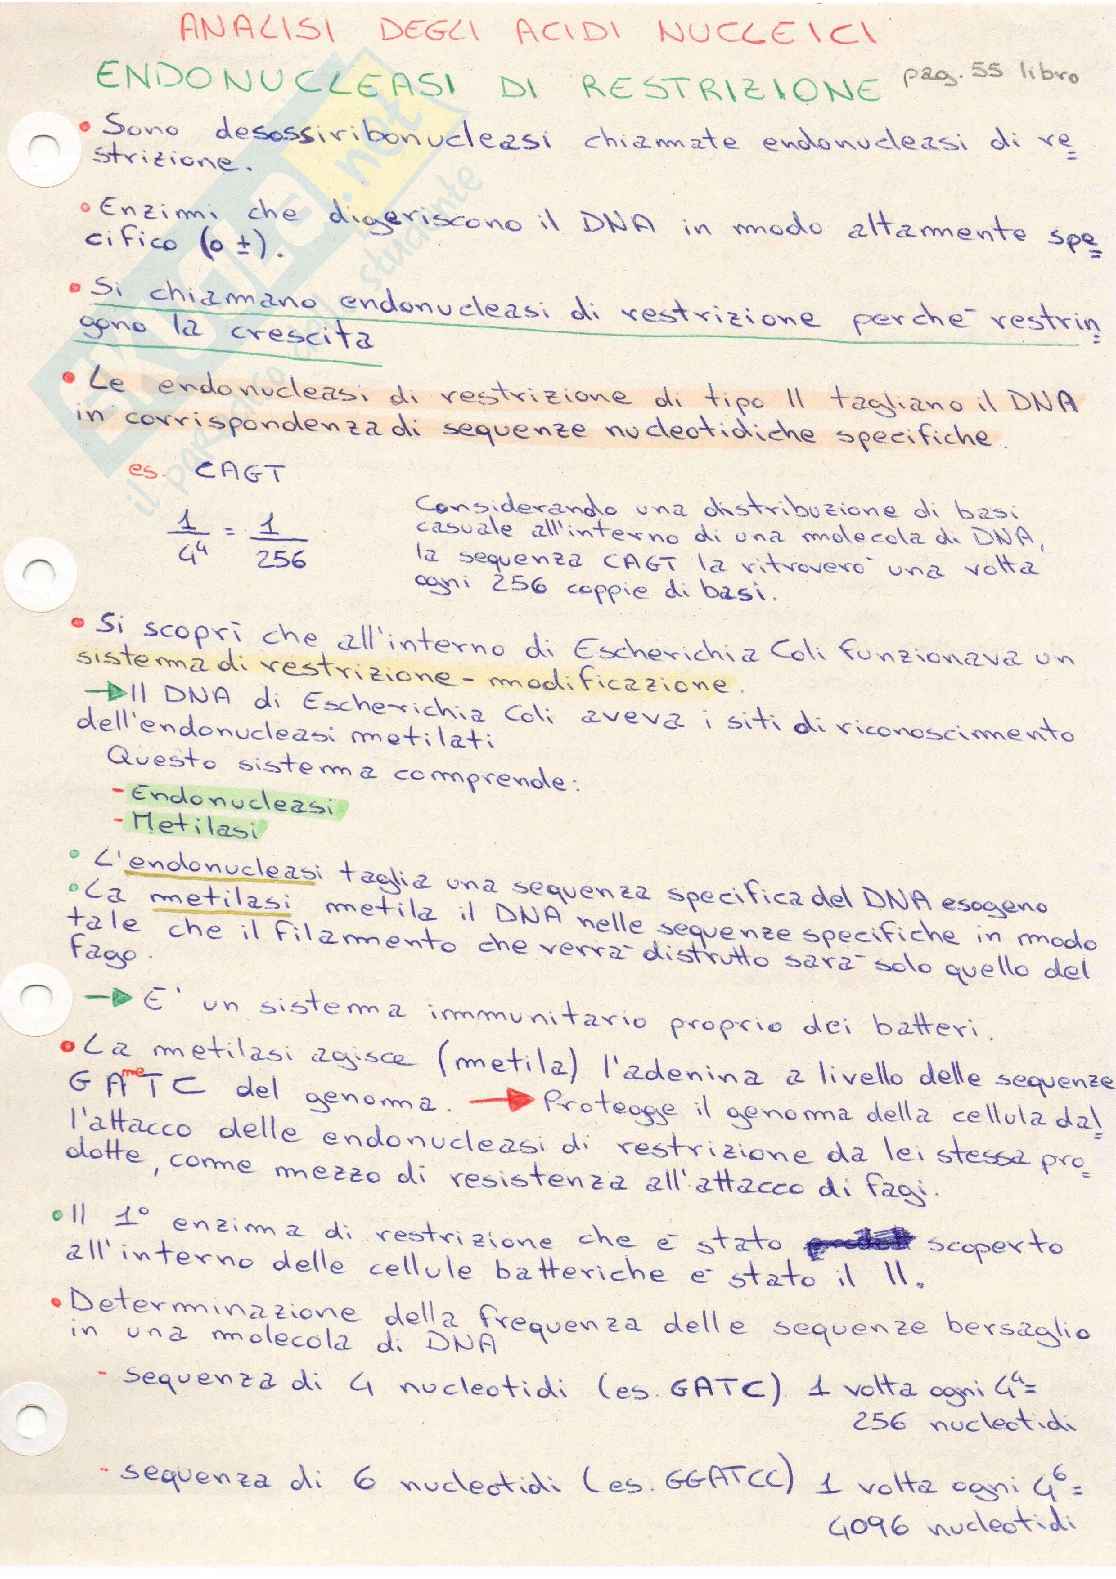 ANALISI DEGLI ACIDI NUCLEICI
ENDONUCLEASI DI RESTRIZIONE pag. 55 libro
• Sono desossiribonucleasi chiamate endonucleasi di re=
strizione.
• Enzimi che digeriscono il DNA in modo altamente spe=
cifico (o ±).
• Si chiamano endonucleasi di restrizione perchè restrin=
gono la crescita
• Le endonucleasi di restrizione di tipo II tagliano il DNA
in corrispondenza di sequenze nucleotidiche specifiche.
es. CAGT
1/4⁴ = 1/256
Considerando una distribuzione di basi
casuale all'interno di una molecola di DNA,
la sequenza CAGT la ritroverò una volta
ogni 256 coppie di basi.
• Si scoprì che all'interno di Escherichia Coli funzionava un
sistema di restrizione - modificazione.
→ Il DNA di Escherichia Coli aveva i siti di riconoscimento
dell'endonucleasi metilati
Questo sistema comprende:
- Endonucleasi
- Metilasi
• L'endonucleasi taglia una sequenza specifica del DNA esogeno
• La metilasi metila il DNA nelle sequenze specifiche in modo
tale che il filamento che verrà distrutto sarà solo quello del
fago.
→ E' un sistema immunitario proprio dei batteri.
• La metilasi agisce (metila) l'adenina a livello delle sequenze
GAᵐᵉTC del genoma. → Protegge il genoma della cellula dal=
l'attacco delle endonucleasi di restrizione da lei stessa pro=
dotte, come mezzo di resistenza all'attacco di fagi.
• Il 1° enzima di restrizione che è stato scoperto
all'interno delle cellule batteriche è stato il II.
• Determinazione della frequenza delle sequenze bersaglio
in una molecola di DNA
- sequenza di 4 nucleotidi (es. GATC) 1 volta ogni 4⁴=
256 nucleotidi
- sequenza di 6 nucleotidi (es. GGATCC) 1 volta ogni 4⁶=
4096 nucleotidi